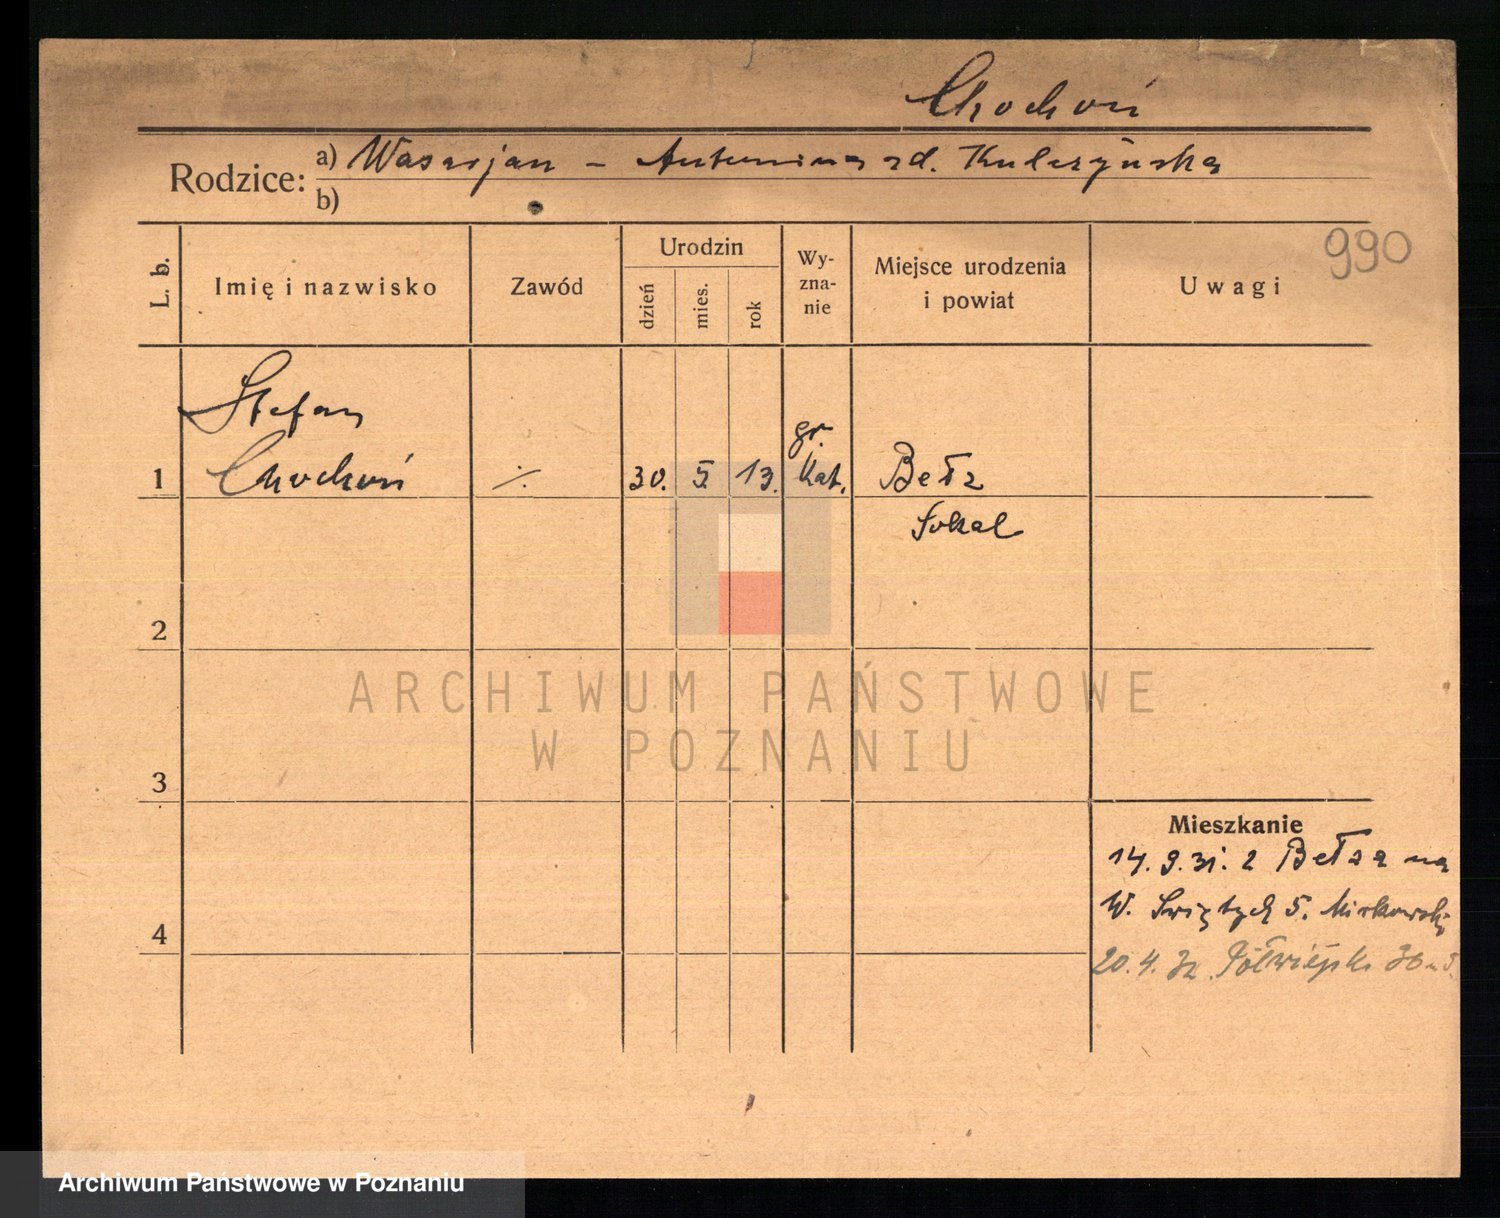 Chochoń
Rodzice: a) Wasyljan – Antonina zd. Kulczyńska
b)
990
L. b.
Imię i nazwisko
Zawód
Urodzin
dzień
mies.
rok
Wy-
zna-
nie
Miejsce urodzenia
i powiat
Uwagi
Stefan
1 Chochoń ./. 30. 5. 13. gr. kat. Bełz
Sokal
2
3
4
ARCHIWUM PAŃSTWOWE
W POZNANIU
Mieszkanie
14. 9. 31. z Bełza na
W. Świętych 5.
20. 4. 32. Półwiejska 36
Archiwum Państwowe w Poznaniu